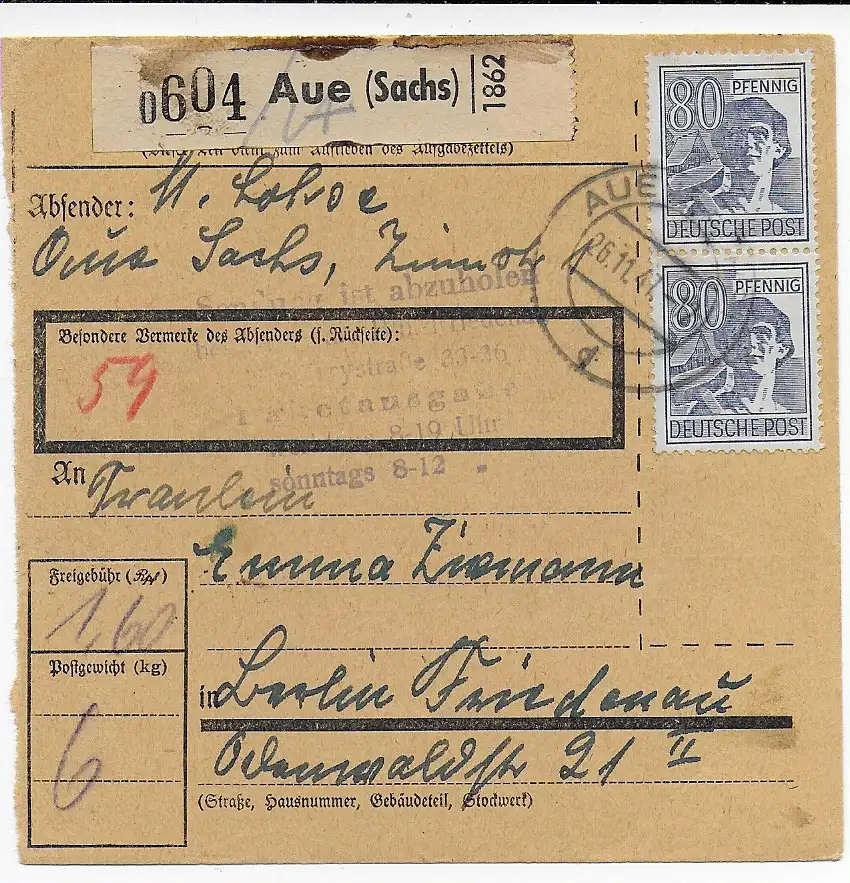 0604 Aue (Sachs) 1862
zum Aufkleben des Aufgabezettels)
80 PFENNIG
DEUTSCHE POST
80 PFENNIG
DEUTSCHE POST
AUE
26.11.47
d
Absender: M. Lohse
Aue Sachs,
Sendung ist abzuholen
Besondere Vermerke des Absenders (s. Rückseite):
59
33-36
Paketausgabe
8-19 Uhr
sonntags 8-12
An Fraulein
Emma Ziemann
Freigebühr (Rpf)
1,60
Postgewicht (kg)
6
in Berlin Friedenau
Odenwaldstr 21 II
(Straße, Hausnummer, Gebäudeteil, Stockwerk)